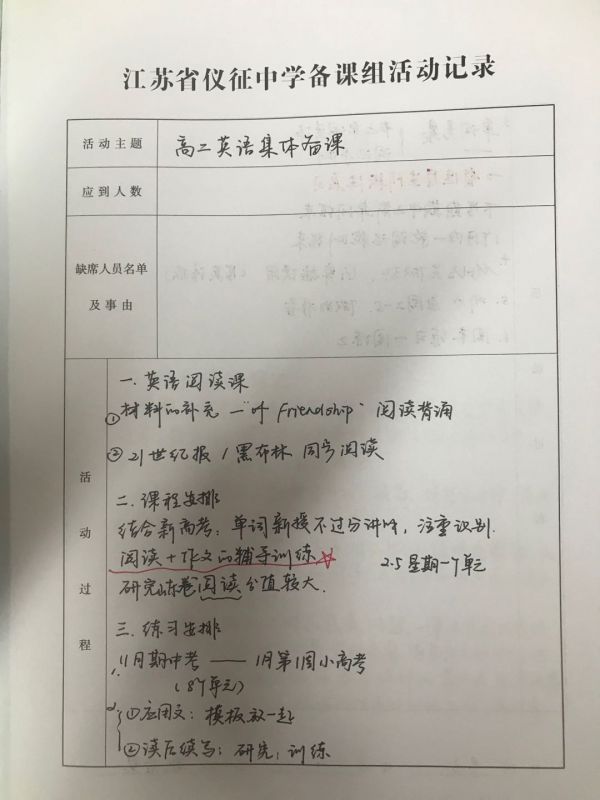 江苏省仪征中学备课组活动记录
活动主题 高二英语集体备课
应到人数
缺席人员名单
及事由
活动过程
一.英语阅读课
①材料的补充 — "of friendship" 阅读背诵
②21世纪报 / 黑布林 同步阅读
二.课程安排
结合新高考:单词新授不过分讲解,注重识别.
阅读+作文的辅导训练
2.5星期一个单元
研究山东卷阅读分值较大.
三.练习安排
1.11月期中考 —— 1月第1周小高考
(8个单元)
2.①应用文:模板放一起
②读后续写:研究,训练